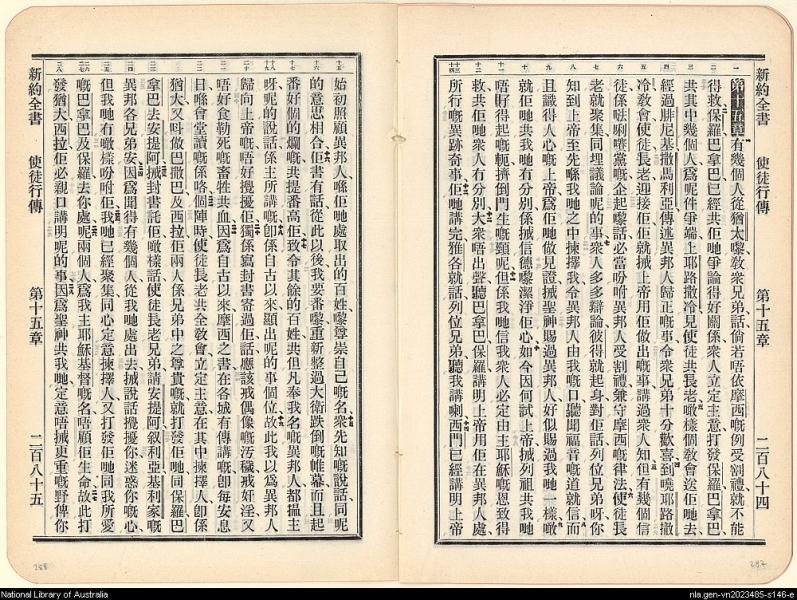 新約全書 使徒行傳 第十五章 二百八十四
第十五章有幾個人從猶太嚟敎衆兄弟話倘若唔依摩西嘅例受割禮就不能
得救保羅巴拿巴已經共佢哋爭論得好關係衆人立定主意打發保羅巴拿巴
共其中幾個人爲呢件爭端上耶路撒冷見使徒共長老噉樣個敎會送佢哋去
經過腓尼基撒馬利亞傳述異邦人歸正嘅事令衆兄弟十分歡喜到曉耶路撒
冷敎會使徒長老迎接佢佢就搣上帝用佢做出嘅事講過衆人知但有幾個信
徒係唎黨嘅企起嚟話必當吩咐異邦人受割禮兼守摩西嘅律法使徒長
老就聚集同埋議論呢的事衆人多多辯論彼得就起身對佢話列位兄弟呀你
知到上帝至先喺我哋之中揀擇我令異邦人由我嘅口聽聞福音嘅道就信而
且識得人心嘅上帝爲佢哋做見證搣聖神賜過異邦人好似賜過我哋一樣嘅
就佢哋共我哋冇分別係搣信德嚟潔淨佢心如今因何試上帝搣列祖共我哋
唔得起嘅軛擠倒門生嘅頸呢但係我哋信我衆人必定由主耶穌嘅恩致得
救共佢哋冇分別大衆唔出聲聽巴拿巴保羅講明上帝用佢在異邦人處
所行嘅異跡奇事佢哋講完雅各就話列位兄弟聽我講喇西門已經講明上帝
始初照顧異邦人喺佢哋處取出的百姓嚟尊崇自己嘅名衆先知嘅說話同呢
的意思相合佢書有話從此以後我要番嚟重新整過大衛跌倒嘅帷幕而且起
番好個的爛嘅共提番高佢致令其餘的百姓共但凡奉我名嘅異邦人都搵主
呀呢的說話係主所講嘅卽係自古以來顯出呢的事個位故此我以爲異邦人
歸向上帝嘅唔好攪擾佢獨係寫封書寄過佢話應該戒偶像嘅汚穢戒奸淫又
唔好食勒死嘅畜牲共血因爲自古以來摩西之書在各城有傳講嘅卽每安息
日喺會堂讀嘅係咯個陣時使徒長老共全敎會立定主意在其中揀擇人卽係
猶大又呌做巴撒巴及西拉佢兩人係兄弟中之尊貴嘅就打發佢哋同保羅巴
拿巴去安提阿搣封書託佢噉樣話使徒長老兄弟請安提阿叙利亞基利家嘅
異邦各兄弟安因爲聞得有幾個人從我哋處出去搣說話攪擾你迷惑你嘅心
但我哋冇噉樣吩咐佢我哋已經聚集同心定意揀擇人又打發佢哋同我所愛
嘅巴拿巴及保羅去你處呢兩個人爲我主耶穌基督嘅名唔顧佢生命故此打
發猶大西拉佢必親口講明呢的事因爲聖神共我哋定意唔搣更重嘅野俾你
新約全書 使徒行傳 第十五章 二百八十五
288
287
National Library of Australia
nla.gen-vn2023485-s146-e